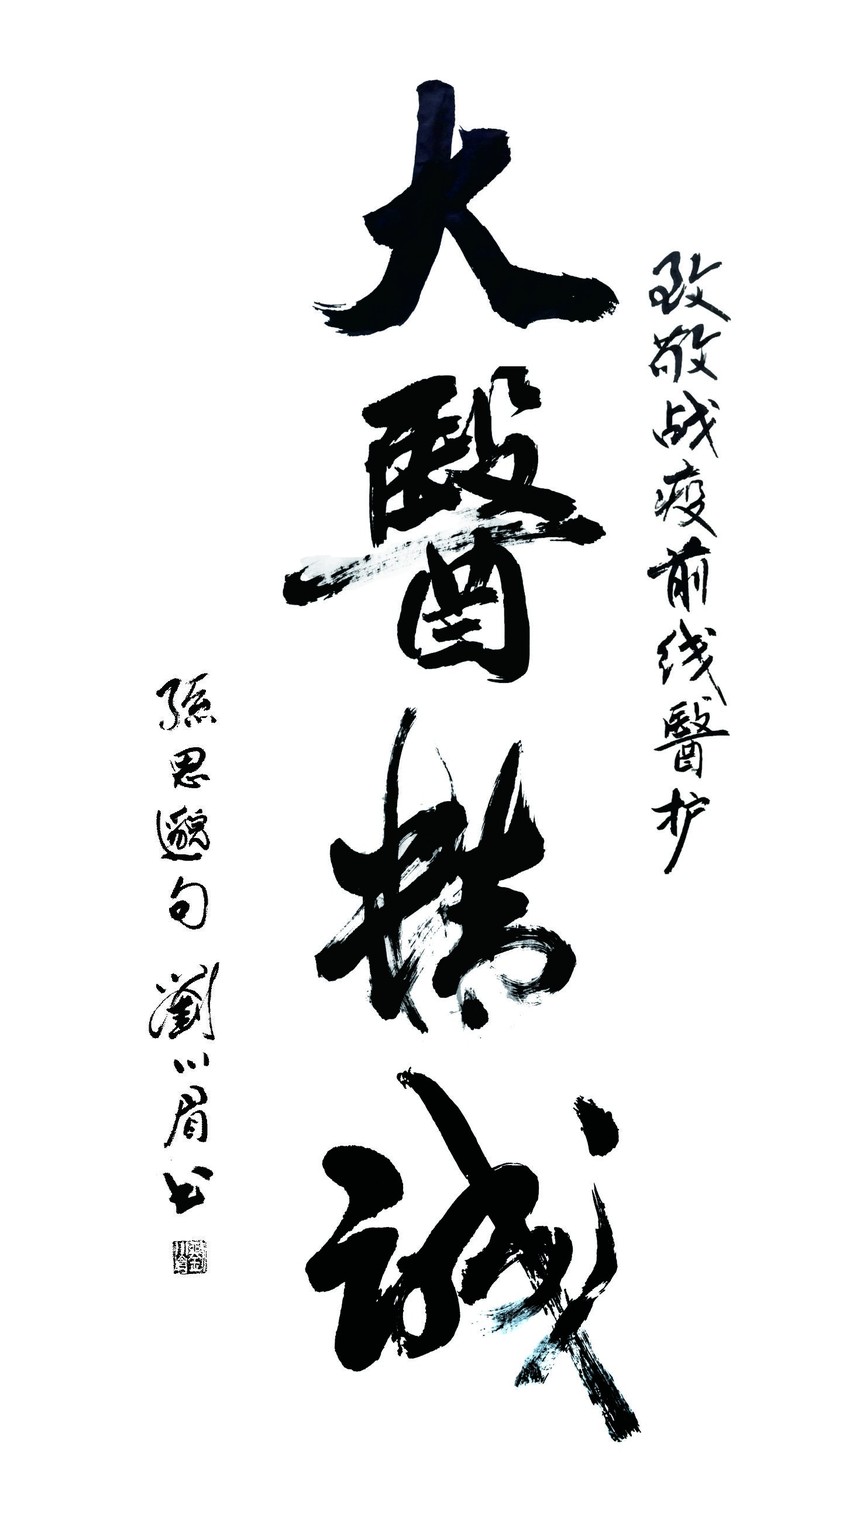 致敬战疫前线醫护
大醫精诚
孫思邈句 劉川眉书